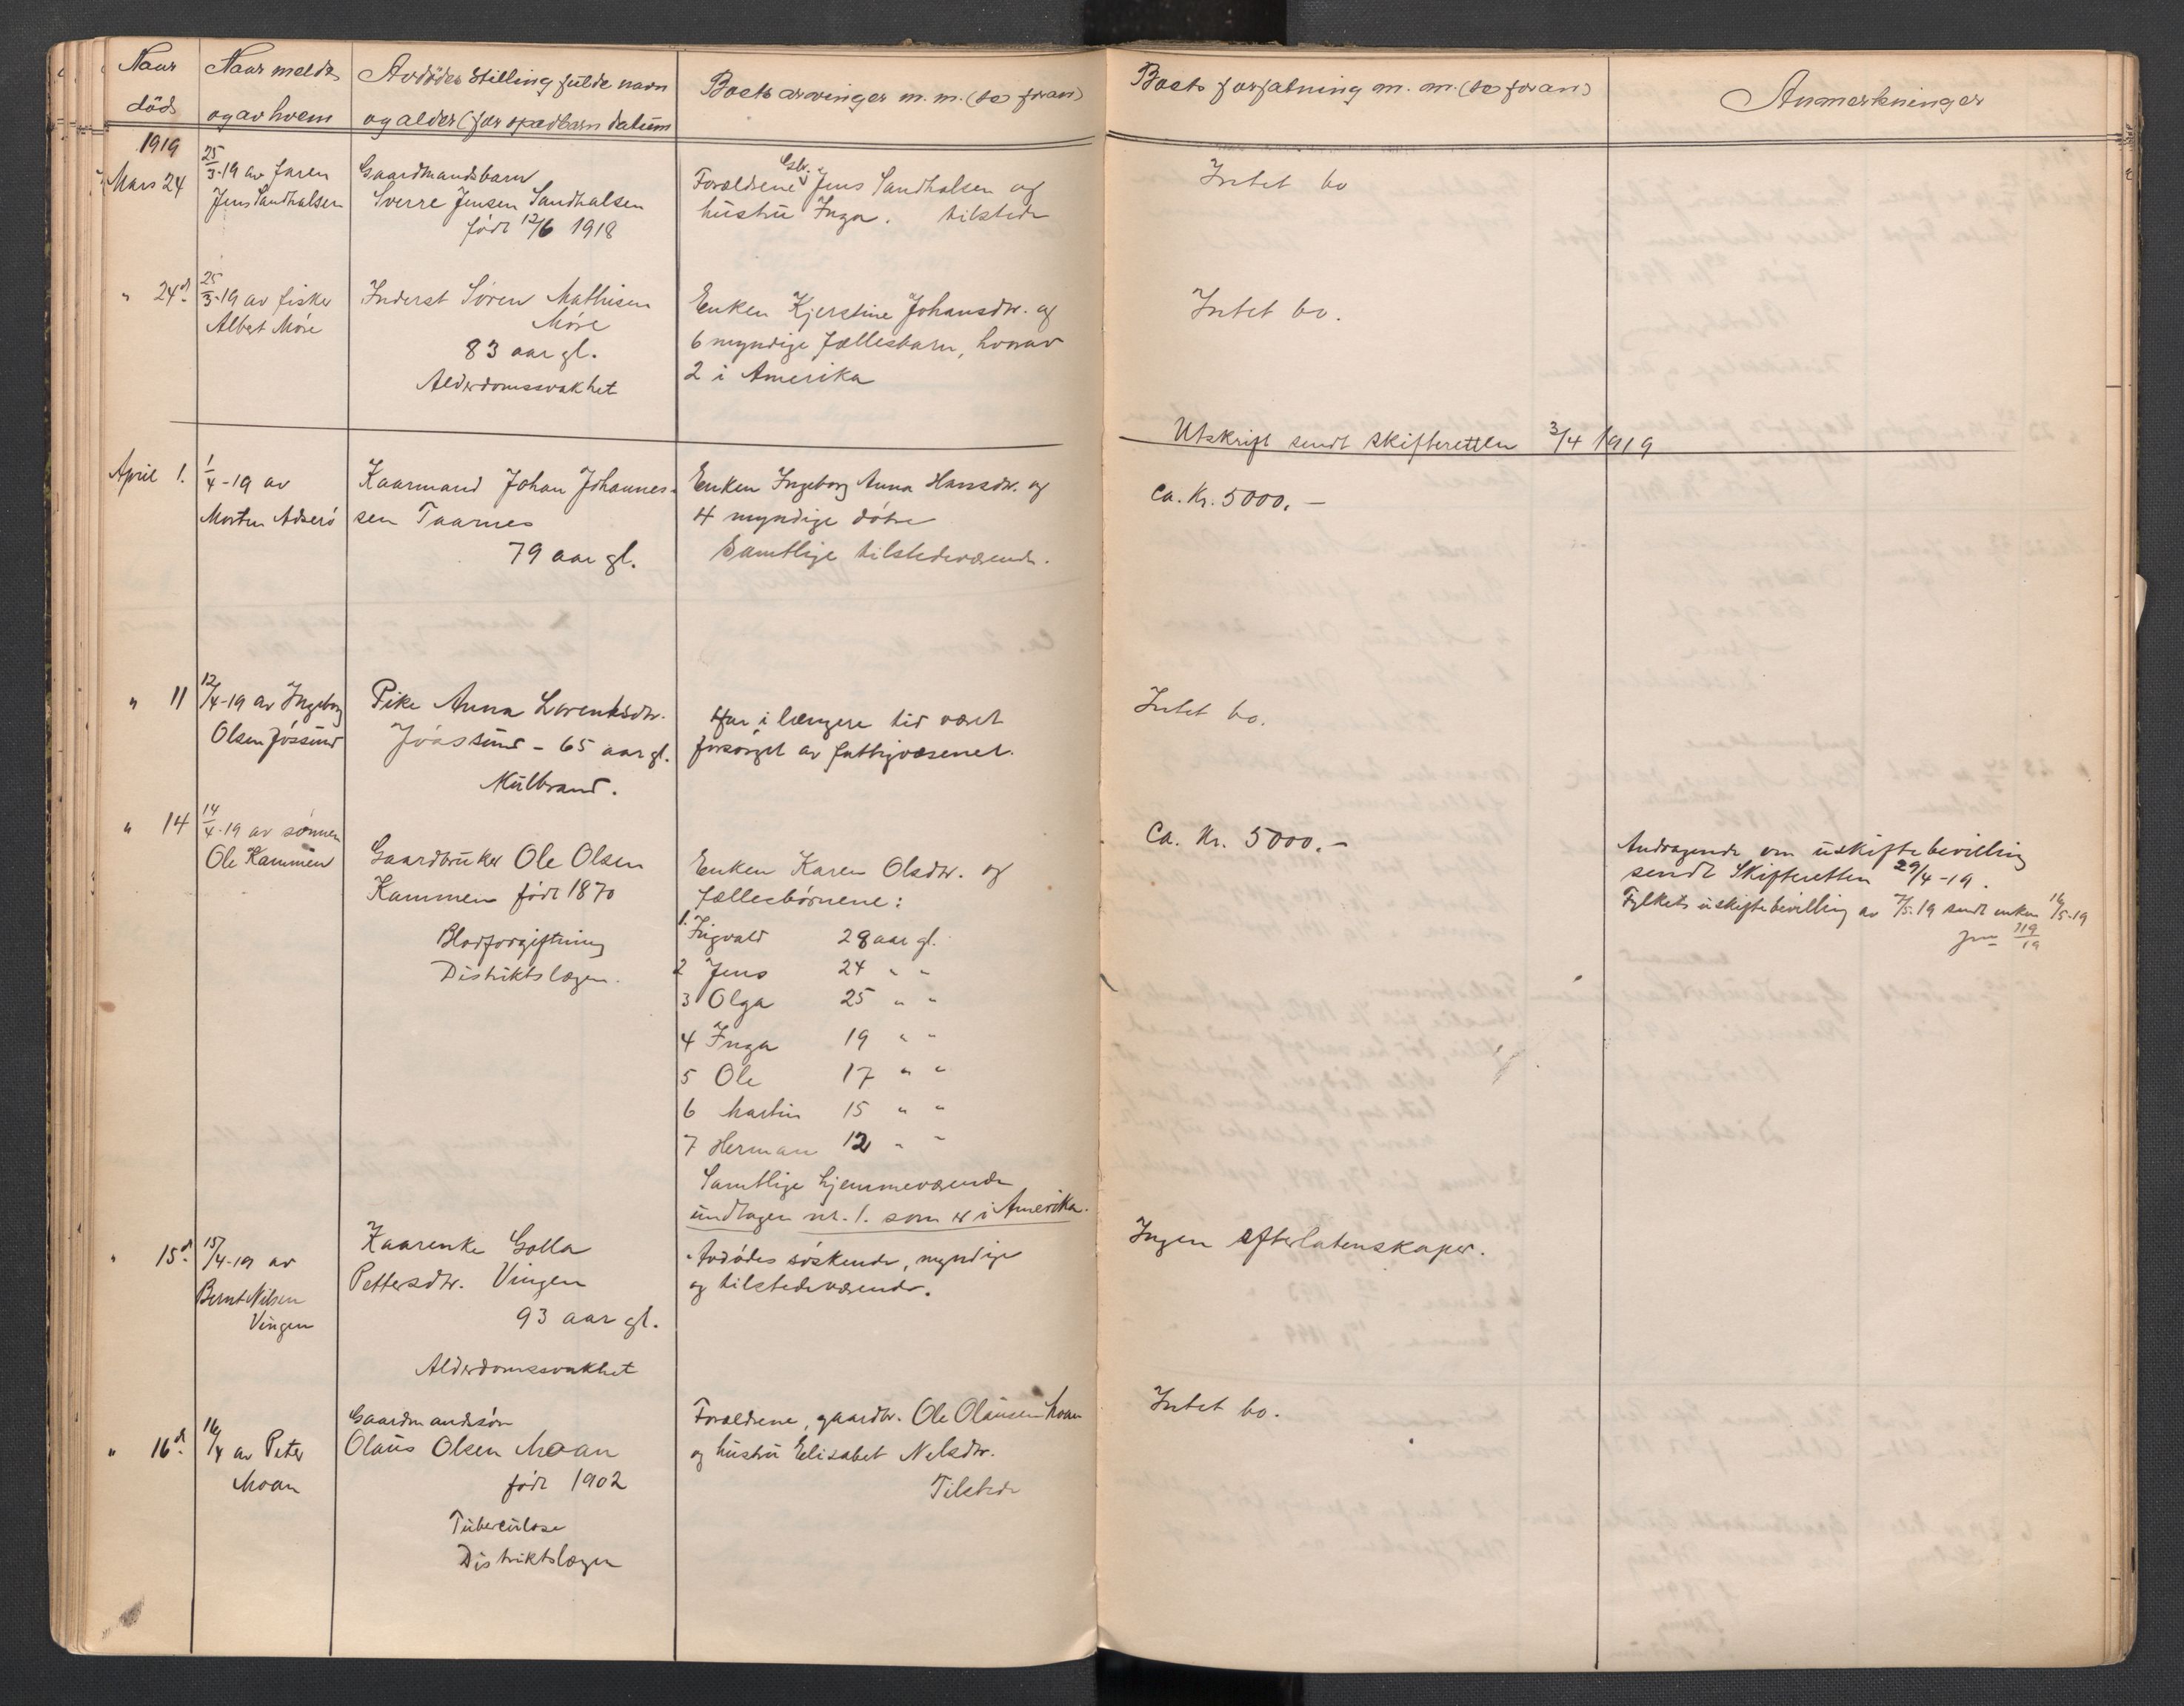 Naar
död
Naar meldt
og av hvem
Avdødes stilling fulde navn
og alder (for spædbarn datum
Boets arvinger m. m. (se foran)
Boets forfatning m. m. (se foran)
Anmerkninger
1919
Mars 24
25/3-19 av faren
Jens Sandhalsen
Gaardmandsbarn
Sverre Jensen Sandhalsen
født 12/6 1918
Forældrene Gbr. Jens Sandhalsen og
hustru Inga. tilstede
Intet bo
" 24d.
25/3-19 av fisker
Albert Móre
Inderst Sören Mathisen
Móre
83 aar gl.
Alderdomssvakhet
Enken Kjerstine Johansdtr. og
6 myndige fællesbarn, hvorav
2 i Amerika
Intet bo.
Utskrift sendt skifteretten 3/4 1919
April 1.
1/4-19 av
Morten Adserö
Kaarmand Johan Johannes-
sen Taarnes
79 aar gl.
Enken Ingeborg Anna Hansdtr. og
4 myndige døtre
Samtlige tilstedeværende.
Ca. Kr. 5000.-
" 11
12/4-19 av Ingeborg
Olsen Jössund
Pike Anna Lorentsdtr.
Jössund - 65 aar gl.
Kulbrand.
Har i længere tid været
forsørget av fattigvæsenet.
Intet bo.
" 14
14/4-19 av sönnen
Ole Kammen
Gaardbruker Ole Olsen
Kammen født 1870
Blodforgiftning
Distriktslægen.
Enken Karen Olsdtr. og
fællesbørnene:
1. Ingvald 28 aar gl.
2 Jens 24 " "
3 Olga 25 " "
4 Inga 19 " "
5 Ole 17 " "
6 Martin 15 " "
7 Herman 12 " "
Samtlige hjemmeværende
undtagen nr. 1. som er i Amerika.
Ca. Kr. 5000.-
Andragende om uskiftebevilling
sendt Skifteretten 29/4-19.
Fylkets uskiftebevilling av 7/5-19 sendt enken 16/5-19
jnr 719/19
" 15d.
15/4-19 av
Bernt Nilsen
Vingen
Kaarenke Golla
Pettersdtr. Vingen
93 aar gl.
Alderdomssvakhet
Avdödes söskende, myndige
og tilstedeværende.
Ingen efterlatenskaper.
" 16d.
16/4 av Peter
Moan
Gaardmandssøn
Olaus Olsen Moan
født 1902
Tuberculose
Distriktslægen
Forældrene, gaardbr. Ole Olausen Moan
og hustru Elisabet Nelsdtr.
Tilstede
Intet bo.